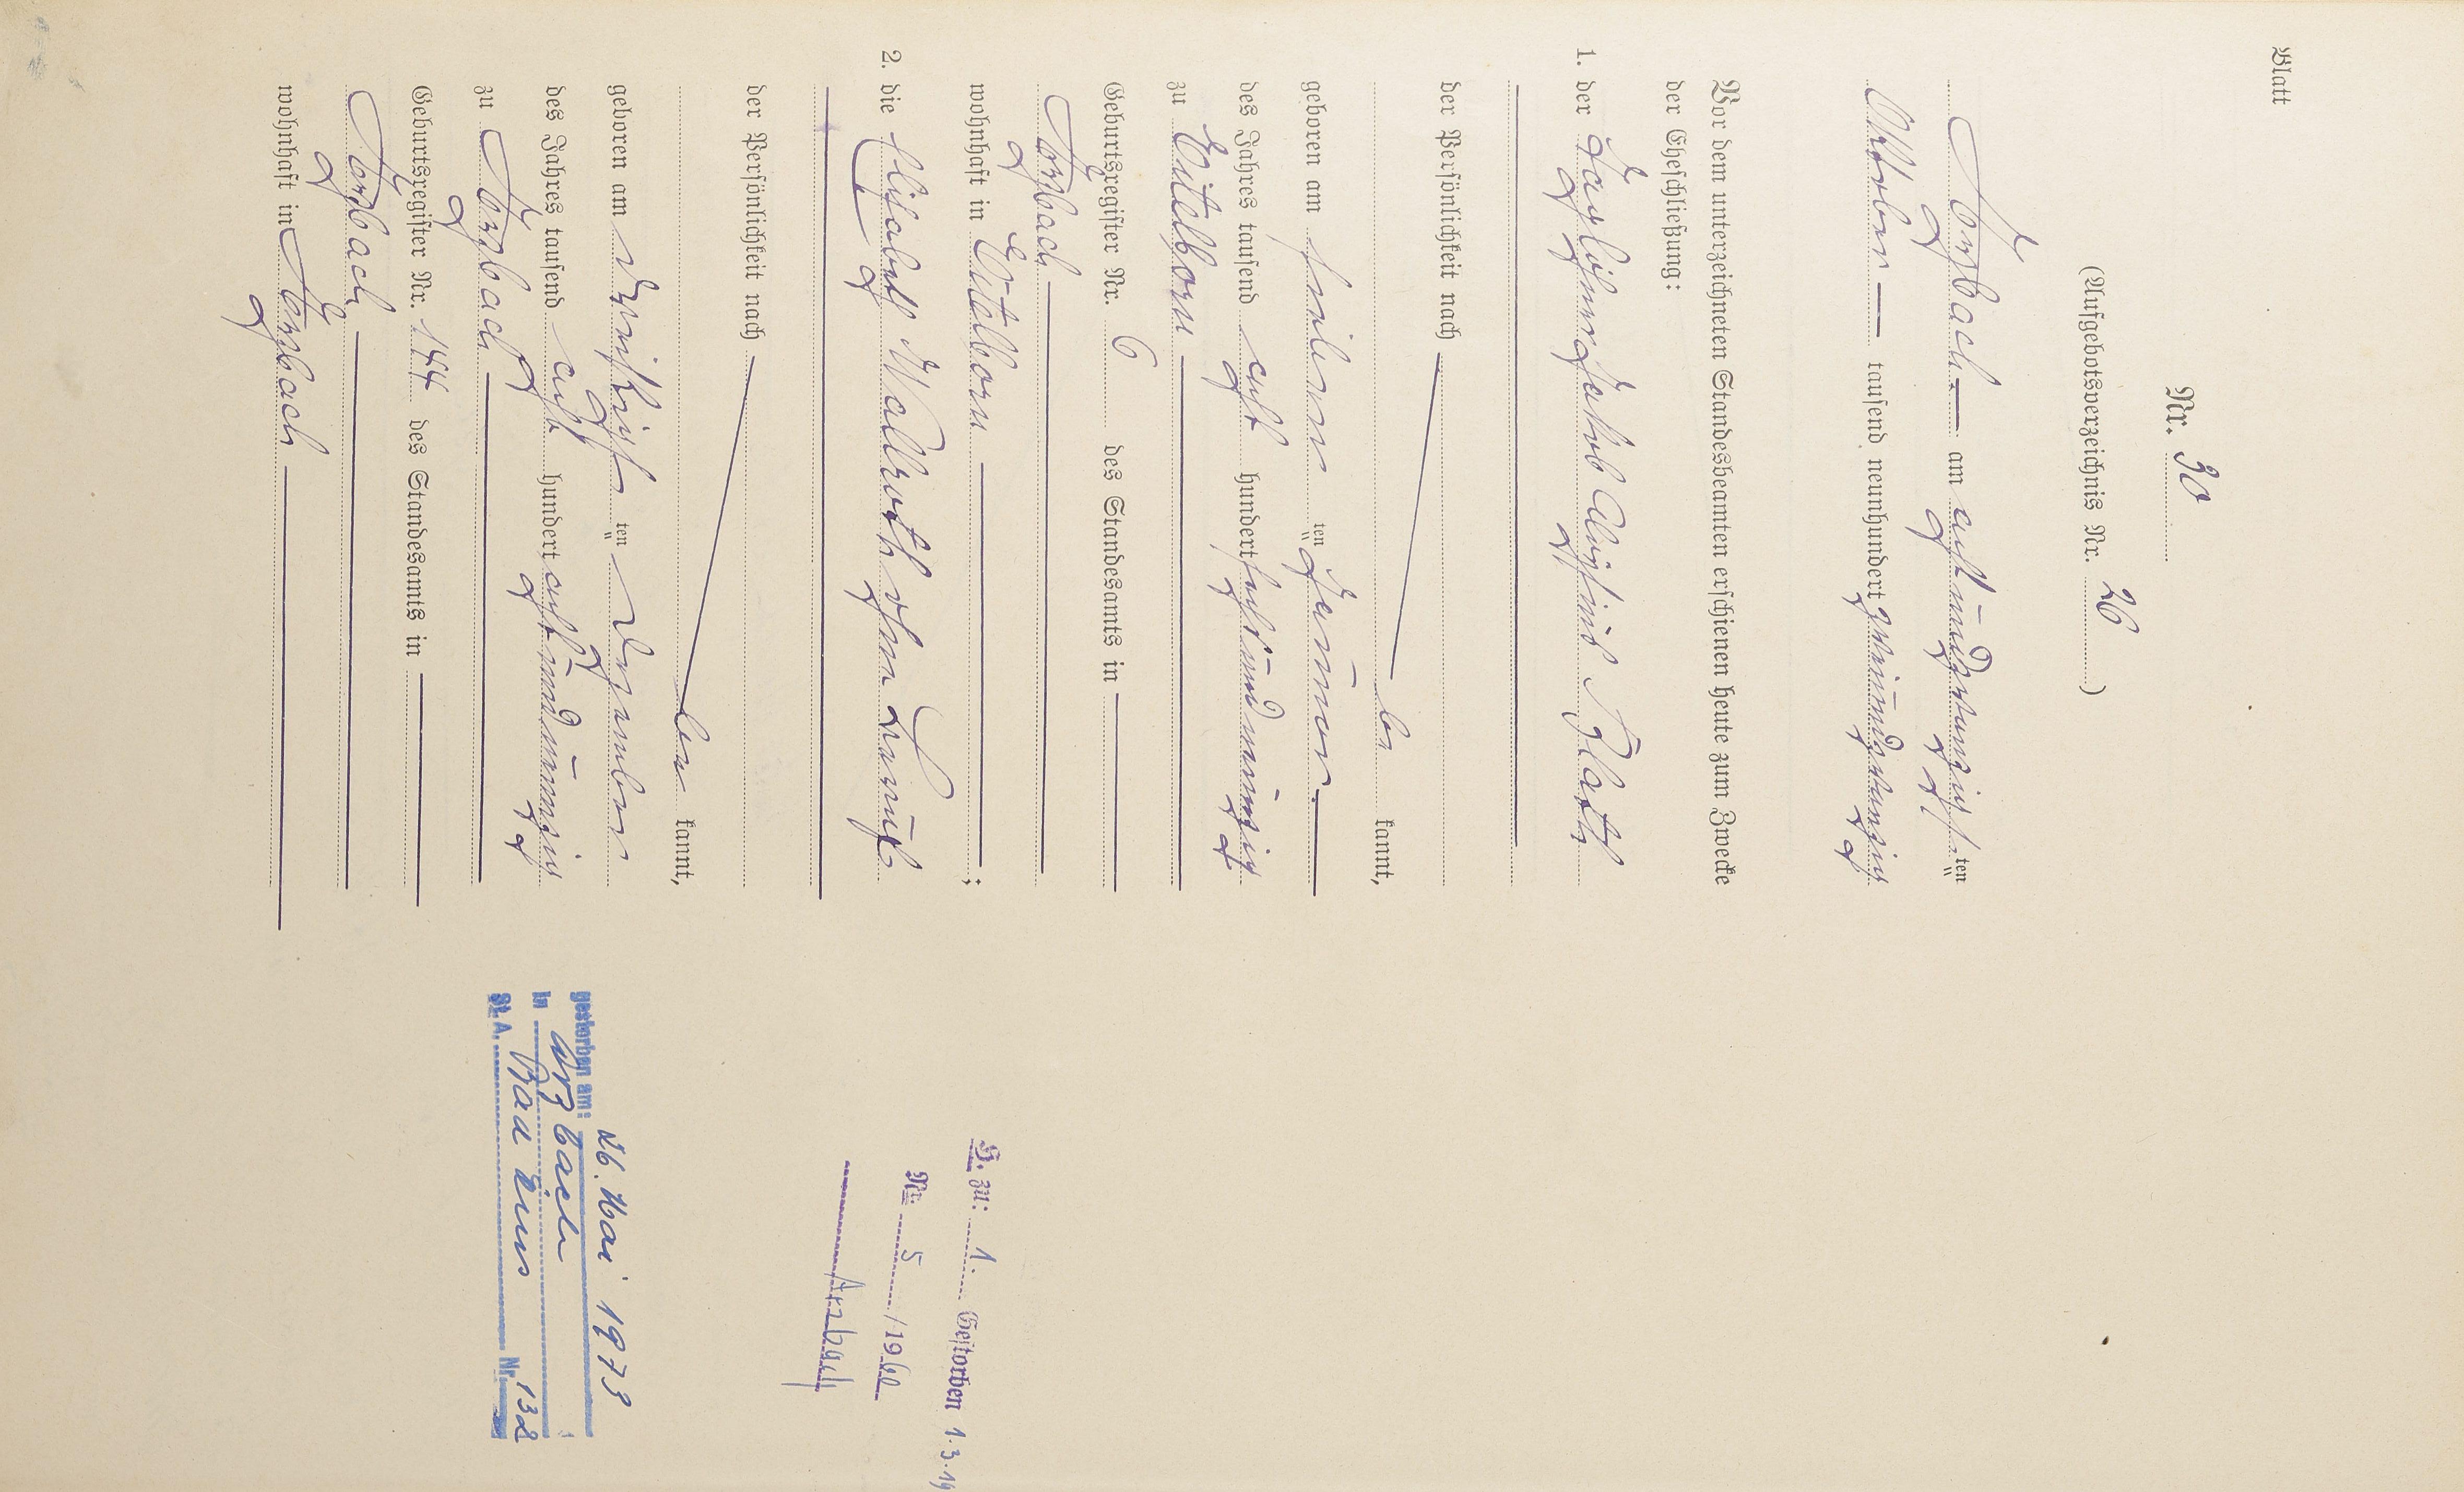 Blatt
Nr. 30
(Aufgebotsverzeichnis Nr. 26)
Arzbach am achtundzwanzigsten
Oktober tausend neunhundert zweiundzwanzig
Vor dem unterzeichneten Standesbeamten erschienen heute zum Zwecke
der Eheschließung:
1. der Taglöhner Jakob Aloysius Plath
der Persönlichkeit nach
be kannt,
geboren am siebenten Januar
des Jahres tausend acht hundert sechsundneunzig
zu Eitelborn
Geburtsregister Nr. 6 des Standesamts in
Arzbach
wohnhaft in Eitelborn ;
2. die Elisabeth Wallroth ohne Beruf
der Persönlichkeit nach
be kannt,
geboren am dreißigsten Dezember
des Jahres tausend acht hundert achtundneunzig
zu Arzbach
Geburtsregister Nr. 144 des Standesamts in
Arzbach
wohnhaft in Arzbach
H. zu: 1. Gestorben 1.3.19
Nr. 5 / 1960
Arzbach
gestorben am: 26. Mai 1973
in Arzbach
St. A. Bad Ems Nr. 132